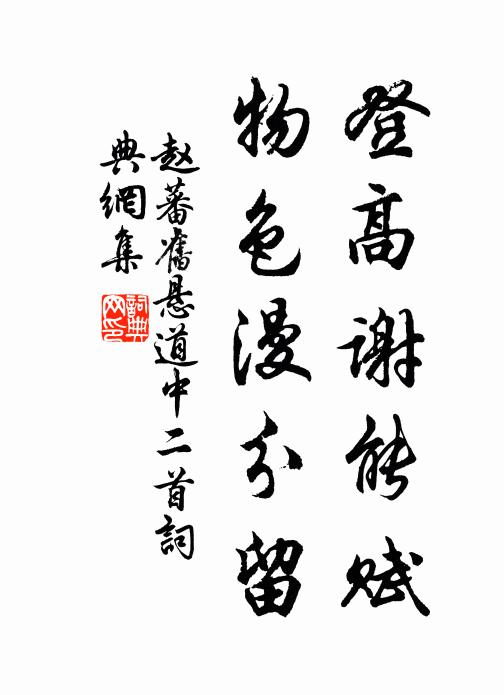 登高谢能赋
物色漫分留
赵蕃舊悬道中二首詞
典網集
詞典网印